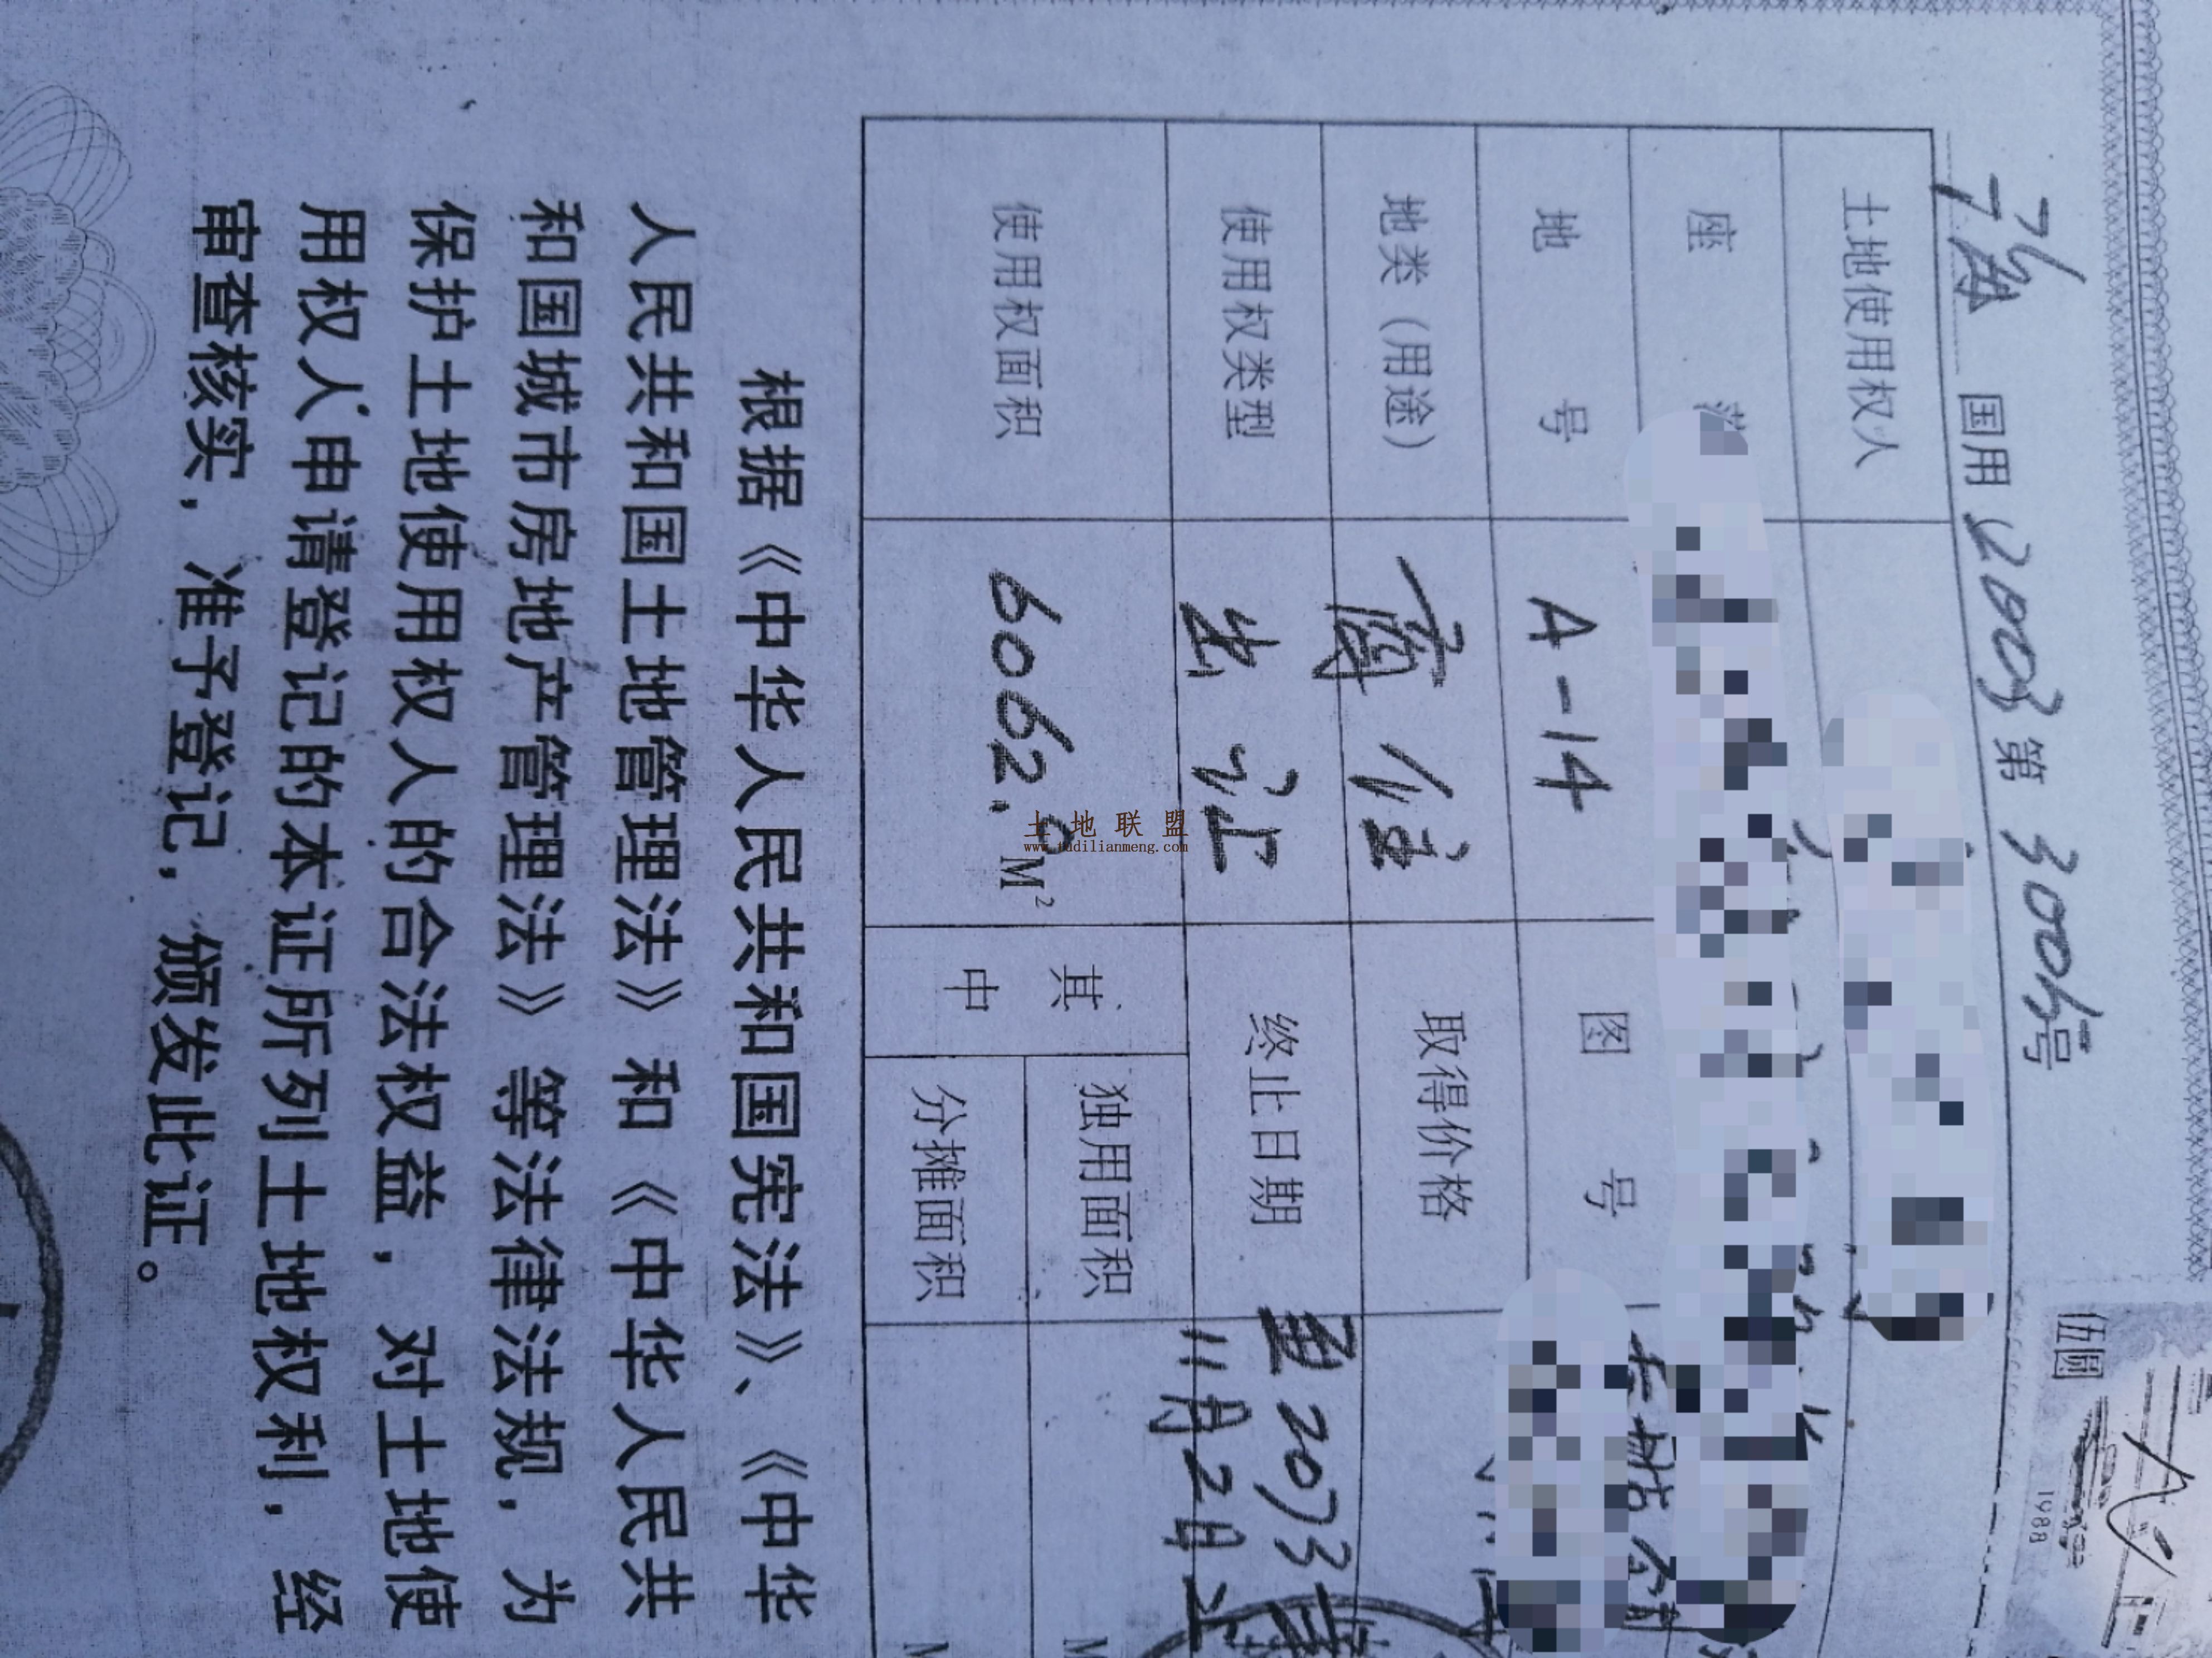 国用2003第3004号
土地使用权人
座
地号 A-14 图号
地类（用途） 商住 取得价格
使用权类型 出让 终止日期 至2073年11月2日止
使用权面积 6062.9M² 其中 独用面积 M
分摊面积 M
根据《中华人民共和国宪法》、《中华
人民共和国土地管理法》和《中华人民共
和国城市房地产管理法》等法律法规，为
保护土地使用权人的合法权益，对土地使
用权人申请登记的本证所列土地权利，经
审查核实，准予登记，颁发此证。
伍圆
1988
土地联盟
www.tudilianmeng.com